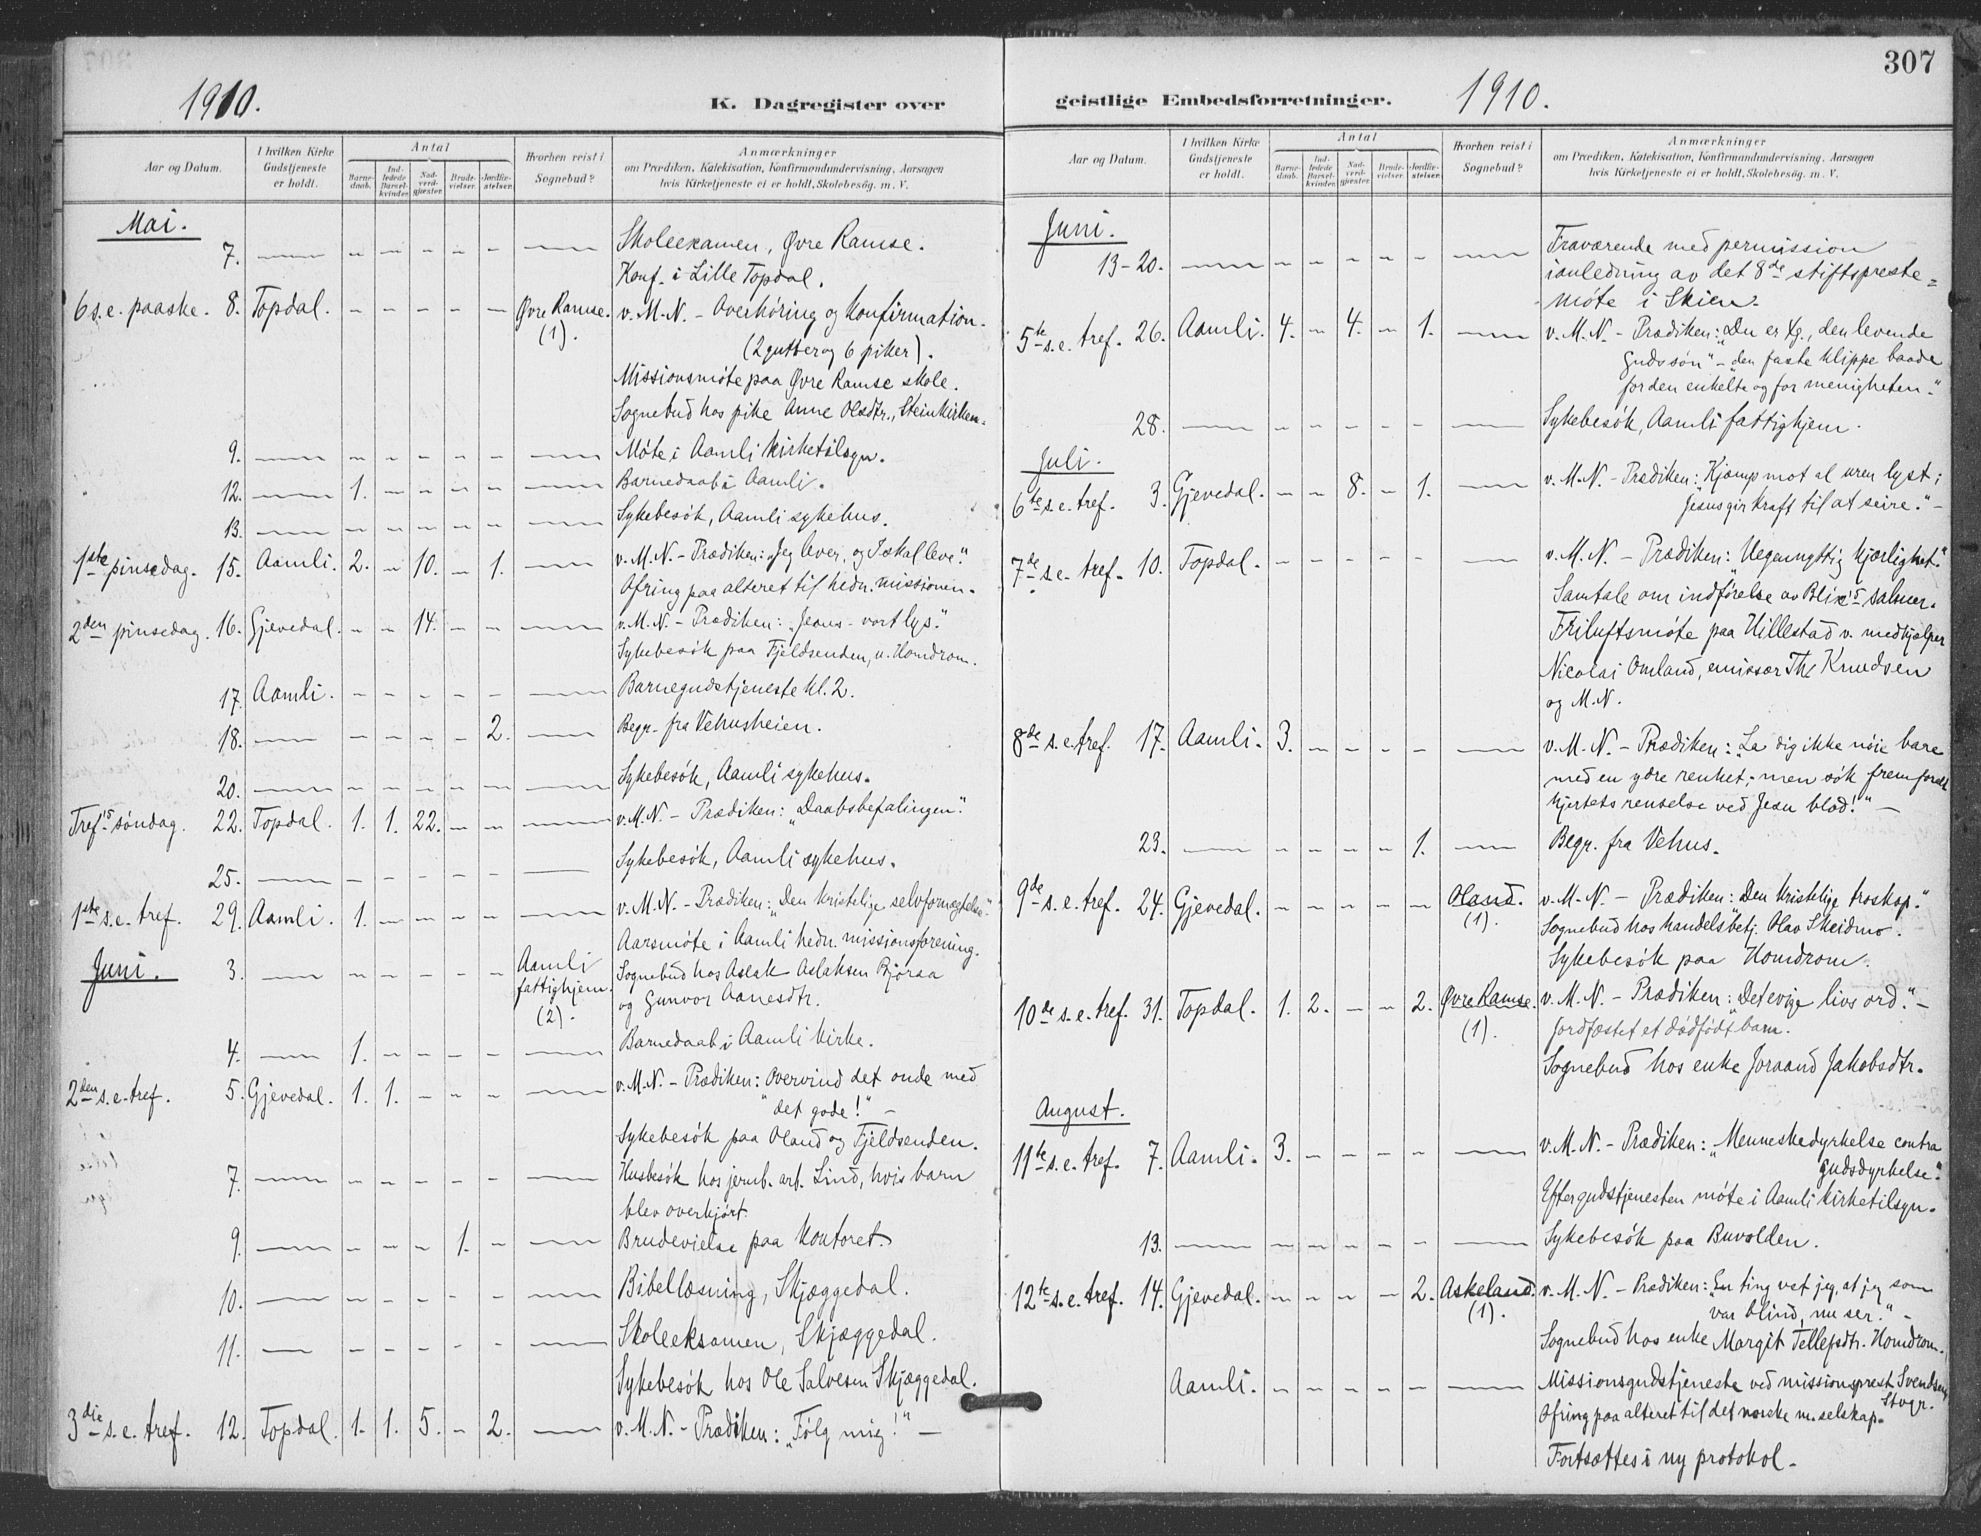 1910.
K. Dagregister over
Aar og Datum.
I hvilken Kirke Gudstjeneste er holdt.
Antal
Barne-daab.
Ind-ledede Barsel-kvinder.
Nad-verd-gjester.
Brude-vielser.
Jordfæ-stelser.
Hvorhen reist i Sognebud?
Anmærkninger
om Prædiken, Katekisation, Konfirmandundervisning, Aarsagen
hvis Kirketjeneste ei er holdt, Skolebesøg. m. V.
Mai.
7. — - - - - - — Skoleexamen, Øvre Ramse.
Konf. i Lille Topdal.
6 s. e. paaske. 8. Topdal. - - - - - Øvre Ramse. (1). v. M. N. - Overhøring og konfirmation.
(2 gutter og 6 piker).
Missionsmøte paa Øvre Ramse skole.
Sognebud hos pike Anne Olsdtr., Steinkirken.
9. — - - - - - — Møte i Aamli kirketilsyn.
12. — 1. - - - - — Barnedaab i Aamli.
13. — - - - - - — Sykebesøk, Aamli sykehus.
1ste pinsedag. 15. Aamli. 2. - 10. - 1. — v. M. N. - Prædiken: „Jeg lever, og I skal leve“.
Ofring paa alteret til hedn. missionen.
2den pinsedag. 16. Gjevedal. - - 14. - - — v. M. N. - Prædiken: „Jesus - vort lys“.
Sykebesøk paa Fjeldsenden, u. Homdrom.
17. Aamli. - - - - - — Barnegudstjeneste kl. 2.
18. — - - - - 2. — Begr. fra Vehusheien.
20. — - - - - - — Sykebesøk, Aamli sykehus.
Tref.s søndag. 22. Topdal. 1. 1. 22. - - — v. M. N. - Prædiken: „Daabsbefalingen“.
25. — - - - - - — Sykebesøk, Aamli sykehus.
1ste s. e. tref. 29. Aamli. 1. - - - - — v. M. N. - Prædiken: „Den kristelige selvfornegtelse“
Aarsmøte i Aamli hedn. missionsforening.
Juni. 3. — - - - - - Aamli fattighjem. (2). Sognebud hos Aslak Aslaksen Bjoraa
og Gunvor Aanesdtr.
4. — 1. - - - - — Barnedaab i Aamli kirke.
2den s. e. tref. 5. Gjevedal. 1. 1. - - - — v. M. N. - Prædiken: Overvind det onde med
"det gode!" -
Sykebesøk paa Oland og Fjeldsenden.
7. — - - - - - — Husbesøk hos jernb. arb. Lind, hvis barn
blev overkjørt.
9. — - - - 1. - — Brudevielse paa kontoret.
10. — - - - - - — Bibellæsning, Skjæggedal.
11. — - - - - - — Skoleeksamen, Skjæggedal.
Sykebesøk hos Ole Salvesen Skjæggedal.
3die s. e. tref. 12. Topdal. 1. 1. 5. - 2. — v. M. N. - Prædiken: „Følg mig!“ -
307
geistlige Embedsforretninger.
1910.
Aar og Datum.
I hvilken Kirke Gudstjeneste er holdt.
Antal
Barne-daab.
Ind-ledede Barsel-kvinder.
Nad-verd-gjester.
Brude-vielser.
Jordfæ-stelser.
Hvorhen reist i Sognebud?
Anmærkninger
om Prædiken, Katekisation, Konfirmandundervisning, Aarsagen
hvis Kirketjeneste ei er holdt, Skolebesøg. m. V.
Juni.
13-20. — - - - - - — Fraværende med permission
i anledning av det 8de stiftspreste=
møte i Skien.
5te s. e. tref. 26. Aamli. 4. - 4. - 1. — v. M. N. - Prædiken: „Du er Xg., den levende
Guds søn“ - „den faste klippe baade
for den enkelte og for menigheten.“
28. — - - - - - — Sykebesøk, Aamli fattighjem.
Juli.
6te s. e. tref. 3. Gjevedal. - - 8. - 1. — v. M. N. - Prædiken: „Kjæmp mot al uren lyst;
Jesus gir kraft til at seire.“ -
7de s. e. tref. 10. Topdal. - - - - - — v. M. N. - Prædiken: „Uegennyttig kjærlighet“.
Samtale om indførelse av Blix's salmer.
Friluftsmøte paa Hillestad v. medhjælper
Nicolai Omland, emissær Th. Knudsen
og M. N.
8de s. e. tref. 17. Aamli. 3. - - - - — v. M. N. - Prædiken: „La dig ikke nøie bare
med en ydre renhet, men søk fremforalt
hjertets renselse ved Jesu blod!“ -
23. — - - - - 1. — Begr. fra Vehus.
9de s. e. tref. 24. Gjevedal. - - - - - Oland. (1). v. M. N. - Prædiken: „Den kristelige troskap“.
Sognebud hos handelsbetj. Olav Skeidmo.
Sykebesøk paa Homdrom.
10de s. e. tref. 31. Topdal. 1. 2. - - 2. Øvre Ramse. (1). v. M. N. - Prædiken: „Det evige livs ord“. -
Jordfæstet et dødfødt barn.
Sognebud hos enke Joraand Jakobsdtr.
August.
11te s. e. tref. 7. Aamli. 3. - - - - — v. M. N. - Prædiken: „Menneskedyrkelse contra
gudsdyrkelse“.
Efter gudstjenesten møte i Aamli kirketilsyn.
13. — - - - - - — Sykebesøk paa Buvolden.
12te s. e. tref. 14. Gjevedal. - - - - 2. Askeland. (1). v. M. N. - Prædiken: „En ting vet jeg, at jeg som
var blind, nu ser.“ -
Sognebud hos enke Margit Tellefsdtr. Homdrom.
Aamli. - - - - - — Missionsgudstjeneste ved missionsprest Svendsen,
Ofring paa alteret til det norske m. selskap.
Fortsættes i ny protokol.